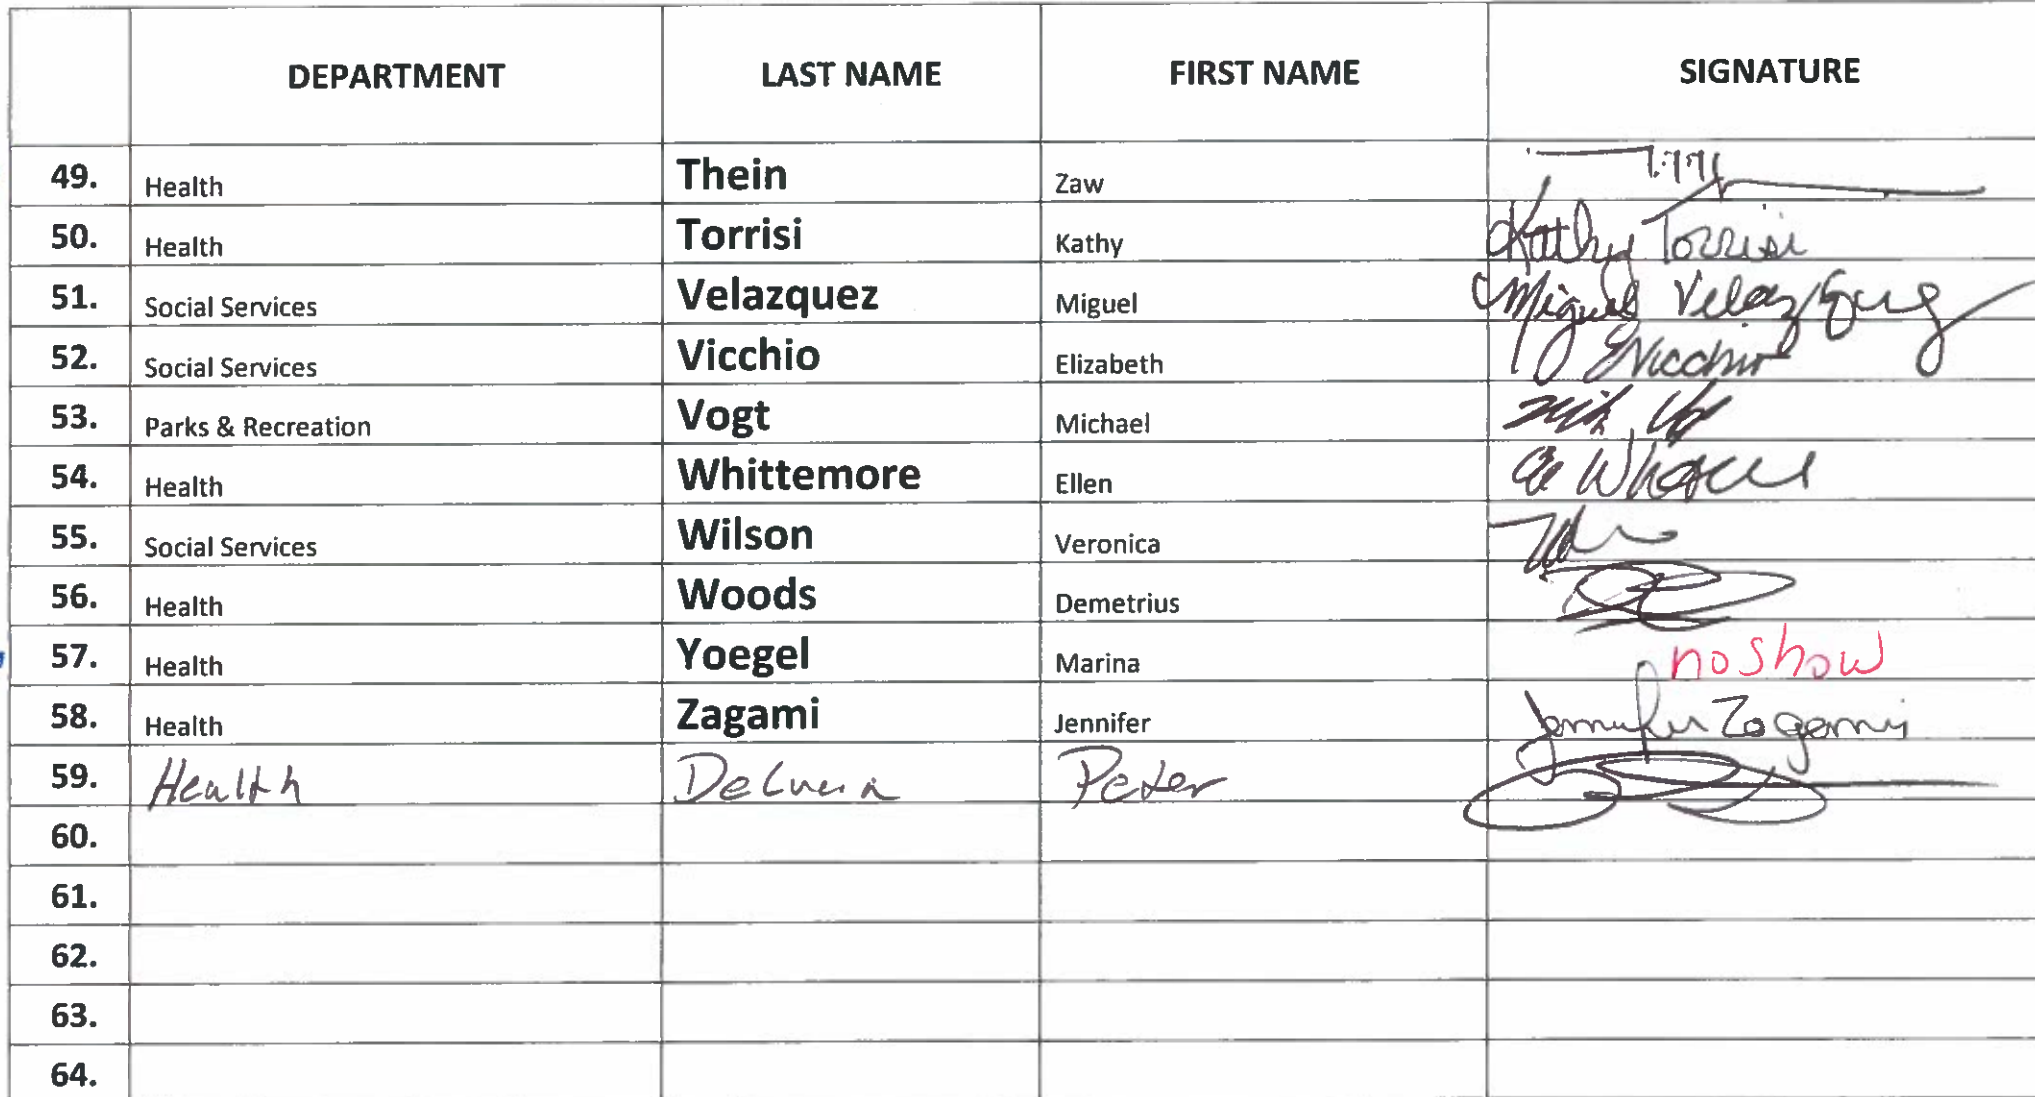 DEPARTMENT LAST NAME FIRST NAME SIGNATURE
49. Health Thein Zaw
50. Health Torrisi Kathy Kathy Torrisi
51. Social Services Velazquez Miguel Miguel Velazquez
52. Social Services Vicchio Elizabeth EVicchio
53. Parks & Recreation Vogt Michael
54. Health Whittemore Ellen
55. Social Services Wilson Veronica
56. Health Woods Demetrius
57. Health Yoegel Marina no show
58. Health Zagami Jennifer Jennifer Zagami
59. Health DeLucia Peter
60.
61.
62.
63.
64.